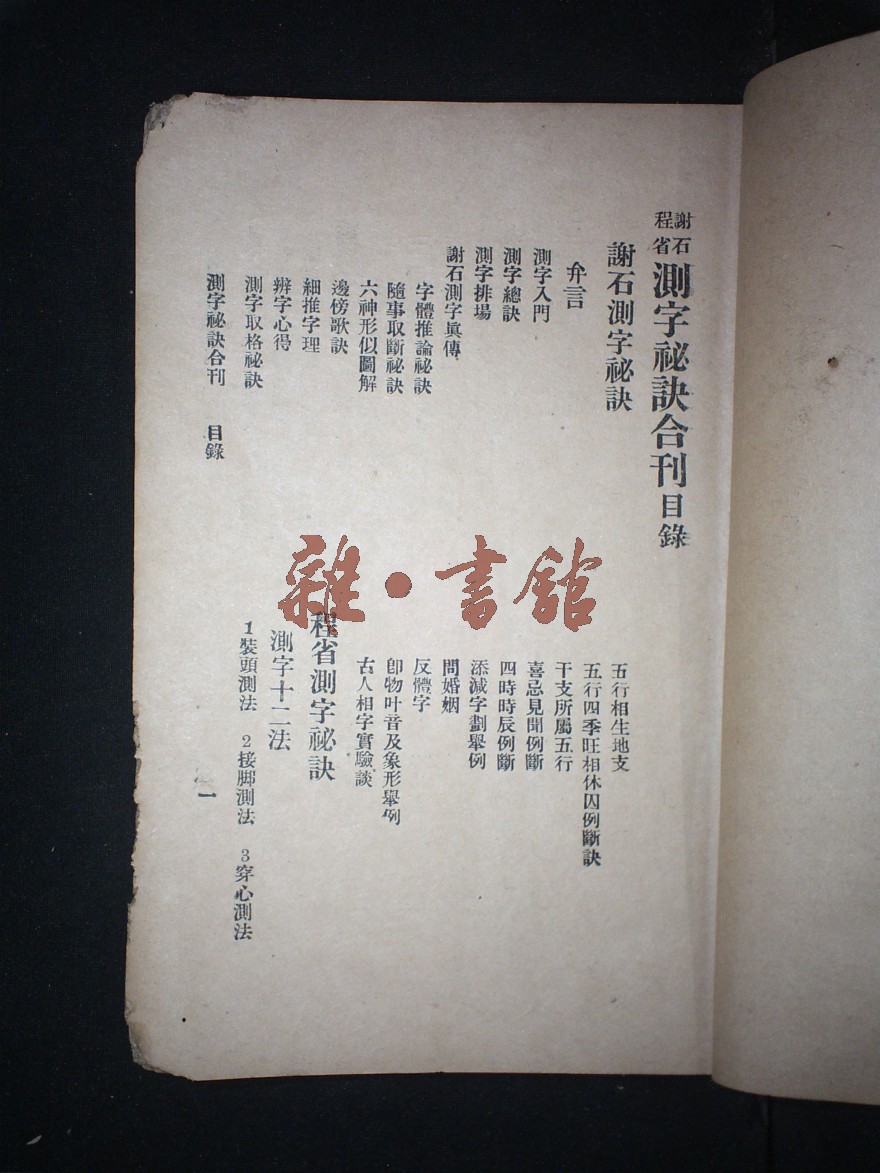 謝石程省測字祕訣合刊目錄
謝石測字祕訣
弁言
測字入門
測字總訣
測字排場
謝石測字眞傳
字體推論祕訣
隨事取斷祕訣
六神形似圖解
邊傍歌訣
細推字理
辨字心得
測字取格祕訣
五行相生地支
五行四季旺相休囚例斷訣
干支所屬五行
喜忌見聞例斷
四時時辰例斷
添減字劃舉例
問婚姻
反體字
卽物叶音及象形舉例
古人相字實驗談
程省測字祕訣
測字十二法
1裝頭測法 2接脚測法 3穿心測法
測字祕訣合刊 目錄 一
雜·書館